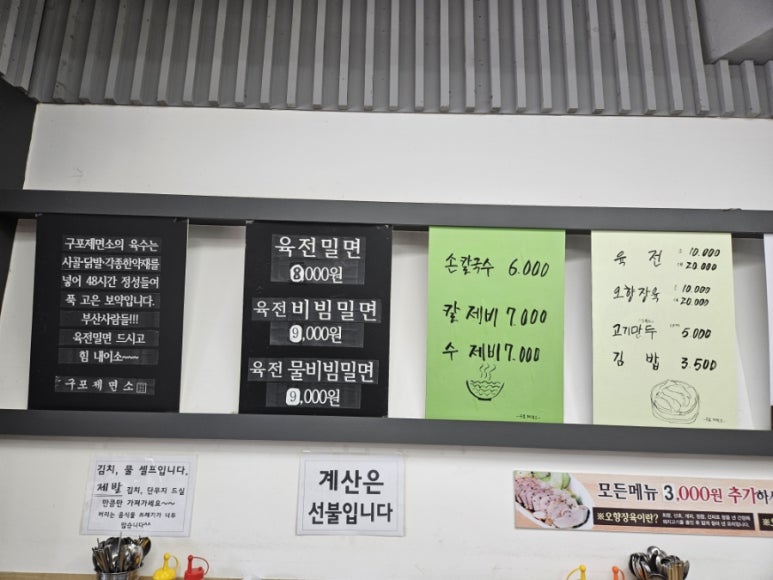 구포제면소의 육수는
사골·닭발·각종한약재를
넣어 48시간 정성들여
푹 고은 보약입니다.
부산사람들!!!
육전밀면 드시고
힘 내이소~~~
구포제면소
육전밀면
8,000원
육전 비빔밀면
9,000원
육전 물비빔밀면
9,000원
손칼국수 6.000
칼제비 7.000
수제비 7.000
육전 소 10.000
대 20.000
오향장육 소 10.000
대 20.000
고기만두 5.000
김밥 3.500
김치, 물 셀프입니다.
제발 김치, 단무지 드실
만큼만 가져가세요~~
버리는 음식물 쓰레기가 너무
많습니다^^
계산은
선불입니다
모든메뉴 3,000원 추가하시
※오향장육이란?